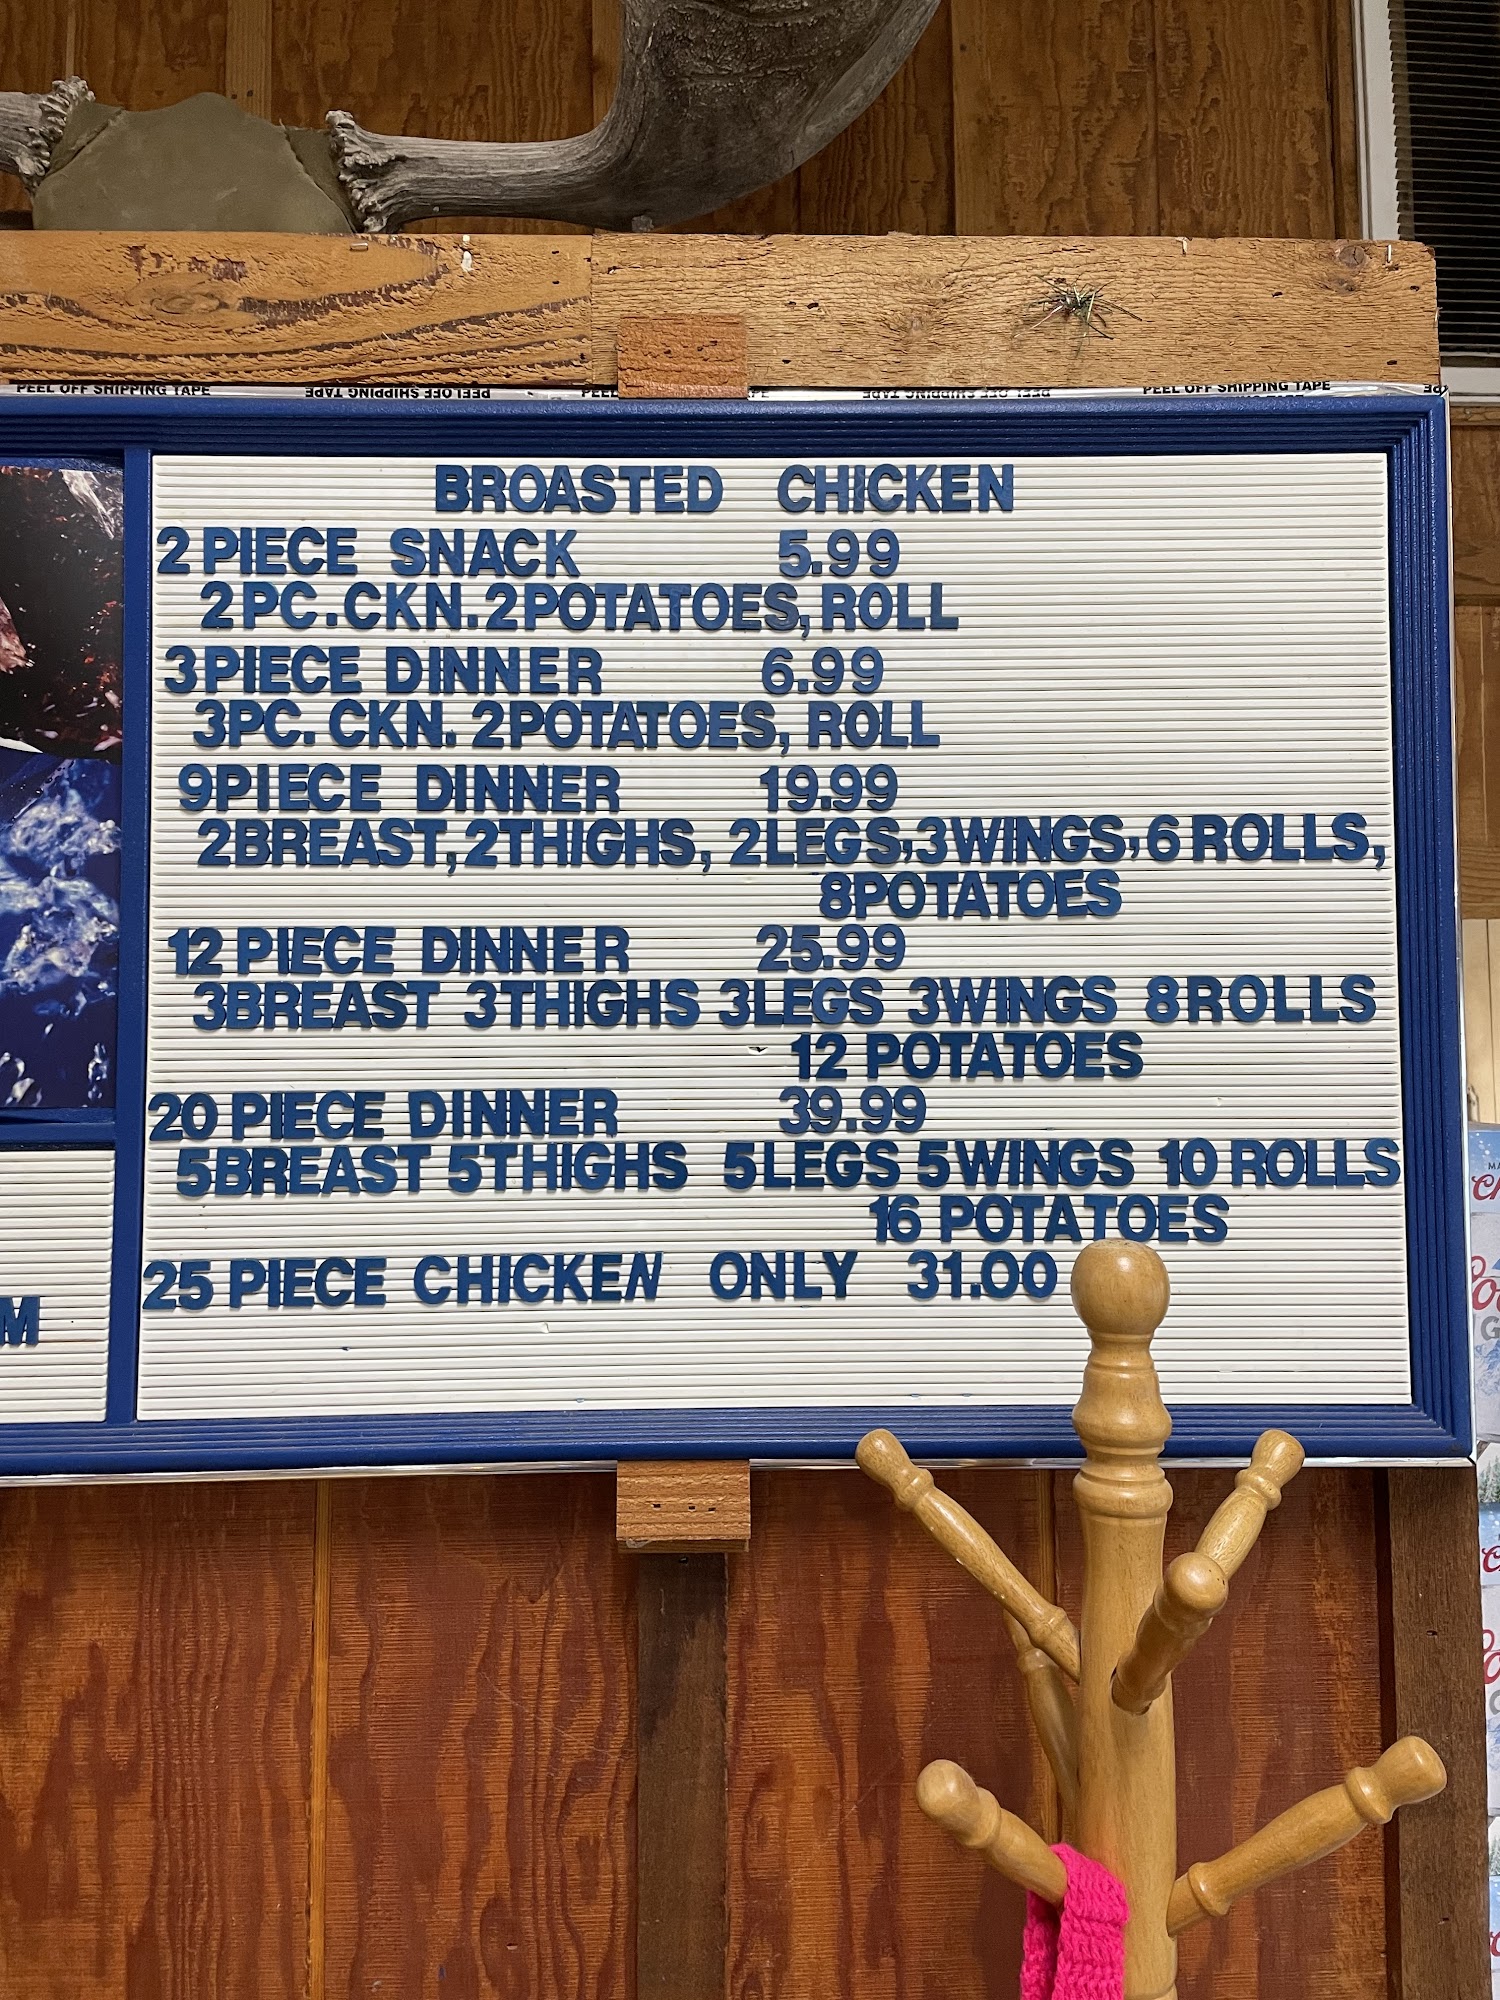 PEEL OFF SHIPPING TAPE
PEEL OFF SHIPPING TAPE
PEEL
PEEL OFF SHIPPING TAPE
PEEL OFF SHIPPING TAPE
BROASTED CHICKEN
2 PIECE SNACK 5.99
2 PC.CKN.2POTATOES, ROLL
3 PIECE DINNER 6.99
3PC. CKN. 2POTATOES, ROLL
9PIECE DINNER 19.99
2BREAST,2THIGHS, 2LEGS,3WINGS,6 ROLLS,
8POTATOES
12 PIECE DINNER 25.99
3BREAST 3THIGHS 3LEGS 3WINGS 8ROLLS
12 POTATOES
20 PIECE DINNER 39.99
5BREAST 5THIGHS 5LEGS 5WINGS 10 ROLLS
16 POTATOES
25 PIECE CHICKEN ONLY 31.00
M